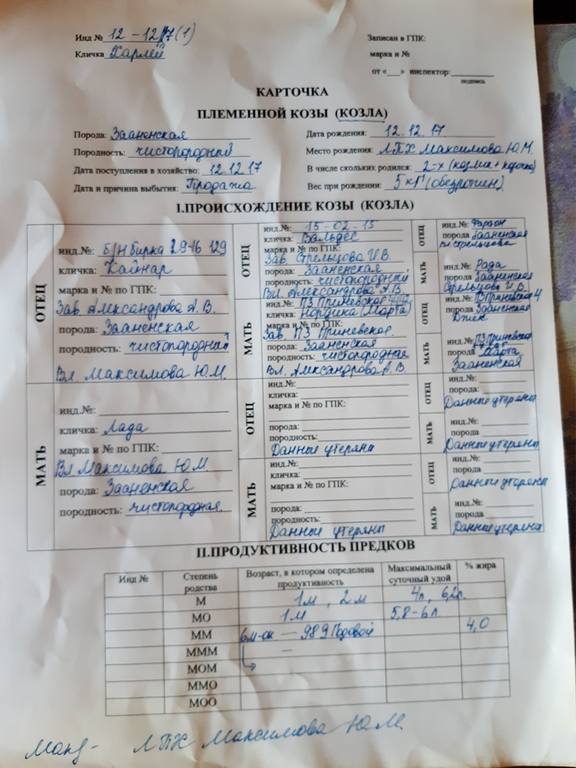 Инд № 12 – 1217(1)
Записан в ГПК:
Кличка Харлей
марка и №
от «___» инспектор:
подпись
КАРТОЧКА
ПЛЕМЕННОЙ КОЗЫ (КОЗЛА)
Порода: Зааненская
Дата рождения: 12.12.17
Породность: чистопородный
Место рождения: ЛПХ Максимова Ю.М.
Дата поступления в хозяйство: 12.12.17
В числе скольких родился 2-х (козлик + козочка)
Дата и причина выбытия: Продажа
Вес при рождении: 5 кг (обезрожен)
I.ПРОИСХОЖДЕНИЕ КОЗЫ (КОЗЛА)
ОТЕЦ
инд.№: Б/Н Бирка 2916 129
кличка: Кайнар
марка и № по ГПК:
Зав. Александрова А.В.
порода: Зааненская
породность: чистопородный
Вл. Максимова Ю.М.
ОТЕЦ
инд.№: 15-02-15
кличка: Вальдес
марка и № по ГПК:
Зав. Стрельцова И.В.
порода: Зааненская
породность: чистопородный
Вл. Александрова А.В.
МАТЬ
инд.№: ПЗ Приневское
кличка: Нордика (Марта)
марка и № по ГПК:
Зав. ПЗ Приневское
порода: Зааненская
породность: чистопородная
Вл. Александрова А.В.
ОТЕЦ
инд.№ Фараон
порода Зааненская
МАТЬ
инд.№: Рада
порода Зааненская
Стрельцова И.В.
ОТЕЦ
инд.№: ПЗ Приневский
порода Зааненская
МАТЬ
инд.№: ПЗ Приневский
порода Марта
Зааненская
МАТЬ
инд.№:
кличка: Лада
марка и № по ГПК:
Вл Максимова Ю.М.
порода: Зааненская
породность: чистопородная
ОТЕЦ
инд.№:
кличка:
марка и № по ГПК:
порода:
породность:
Данные утеряны
МАТЬ
инд.№:
кличка:
марка и № по ГПК:
порода:
породность:
Данные утеряны
ОТЕЦ
инд.№:
порода
Данные утеряны
МАТЬ
инд.№:
порода
Данные утеряны
ОТЕЦ
инд.№:
порода
Данные утеряны
МАТЬ
инд.№:
порода
Данные утеряны
II.ПРОДУКТИВНОСТЬ ПРЕДКОВ
Инд №
Степень родства
Возраст, в котором определена продуктивность
Максимальный суточный удой
% жира
М 1м, 2м 4л, 6,2л
МО 1м 5,8-6л
ММ 6м-ок — 989 Годовой 4,0
МММ —
МОМ
ММО
МОО
ЛПХ Максимова Ю.М.